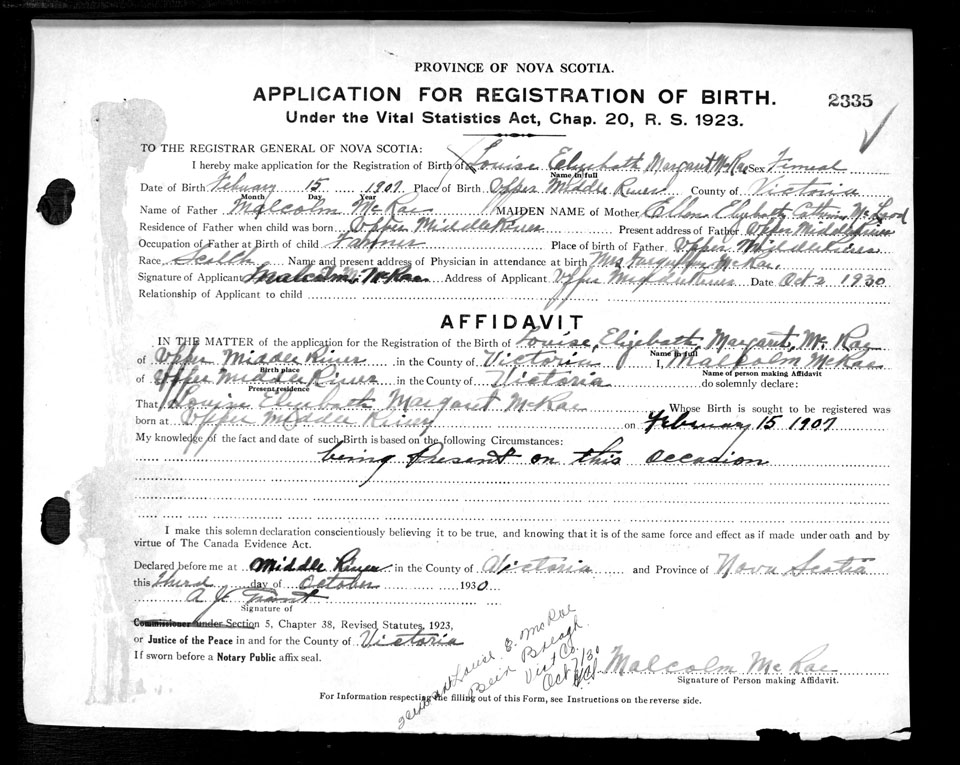 PROVINCE OF NOVA SCOTIA.
APPLICATION FOR REGISTRATION OF BIRTH. 2335
Under the Vital Statistics Act, Chap. 20, R. S. 1923.
TO THE REGISTRAR GENERAL OF NOVA SCOTIA:
I hereby make application for the Registration of Birth of Louise Elizebath Margaret McRae Sex Femeal
Name in full
Date of Birth Febuary 15 1907 Place of Birth Upper Middle River County of Victoria
Month Day Year
Name of Father Malcolm McRae MAIDEN NAME of Mother Ellen Elizebath Cathrin McLeod
Residence of Father when child was born Upper Middle River Present address of Father Upper Middle River
Occupation of Father at Birth of child Farmer Place of birth of Father Upper Middle River
Race Scotth Name and present address of Physician in attendance at birth Mrs Farquhar McRae
Signature of Applicant Malcolm McRae Address of Applicant Upper Middle River Date Oct 2 1930
Relationship of Applicant to child
AFFIDAVIT
IN THE MATTER of the application for the Registration of the Birth of Louise, Elizebath, Margaret, Mc Rae
Name in full
of Upper Middle River in the County of Victoria I, Malcolm McRae
Birth place Name of person making Affidavit
of Upper Middle River in the County of Victoria do solemnly declare:
Present residence
That Louise Elizebath Margaret McRae Whose Birth is sought to be registered was
born at Upper Middle River on February 15 1907
My knowledge of the fact and date of such Birth is based on the following Circumstances:
being Present on this occasion
I make this solemn declaration conscientiously believing it to be true, and knowing that it is of the same force and effect as if made under oath and by
virtue of The Canada Evidence Act.
Declared before me at Middle River in the County of Victoria and Province of Nova Scotia
this third day of October 1930
A J
Signature of
Commissioner under Section 5, Chapter 38, Revised Statutes, 1923,
or Justice of the Peace in and for the County of Victoria
If sworn before a Notary Public affix seal.
Louise E. McRae
Bein Breagh
Vict Co.
Oct 7/30
Malcolm Mc Rae
Signature of Person making Affidavit.
For Information respecting the filling out of this Form, see Instructions on the reverse side.